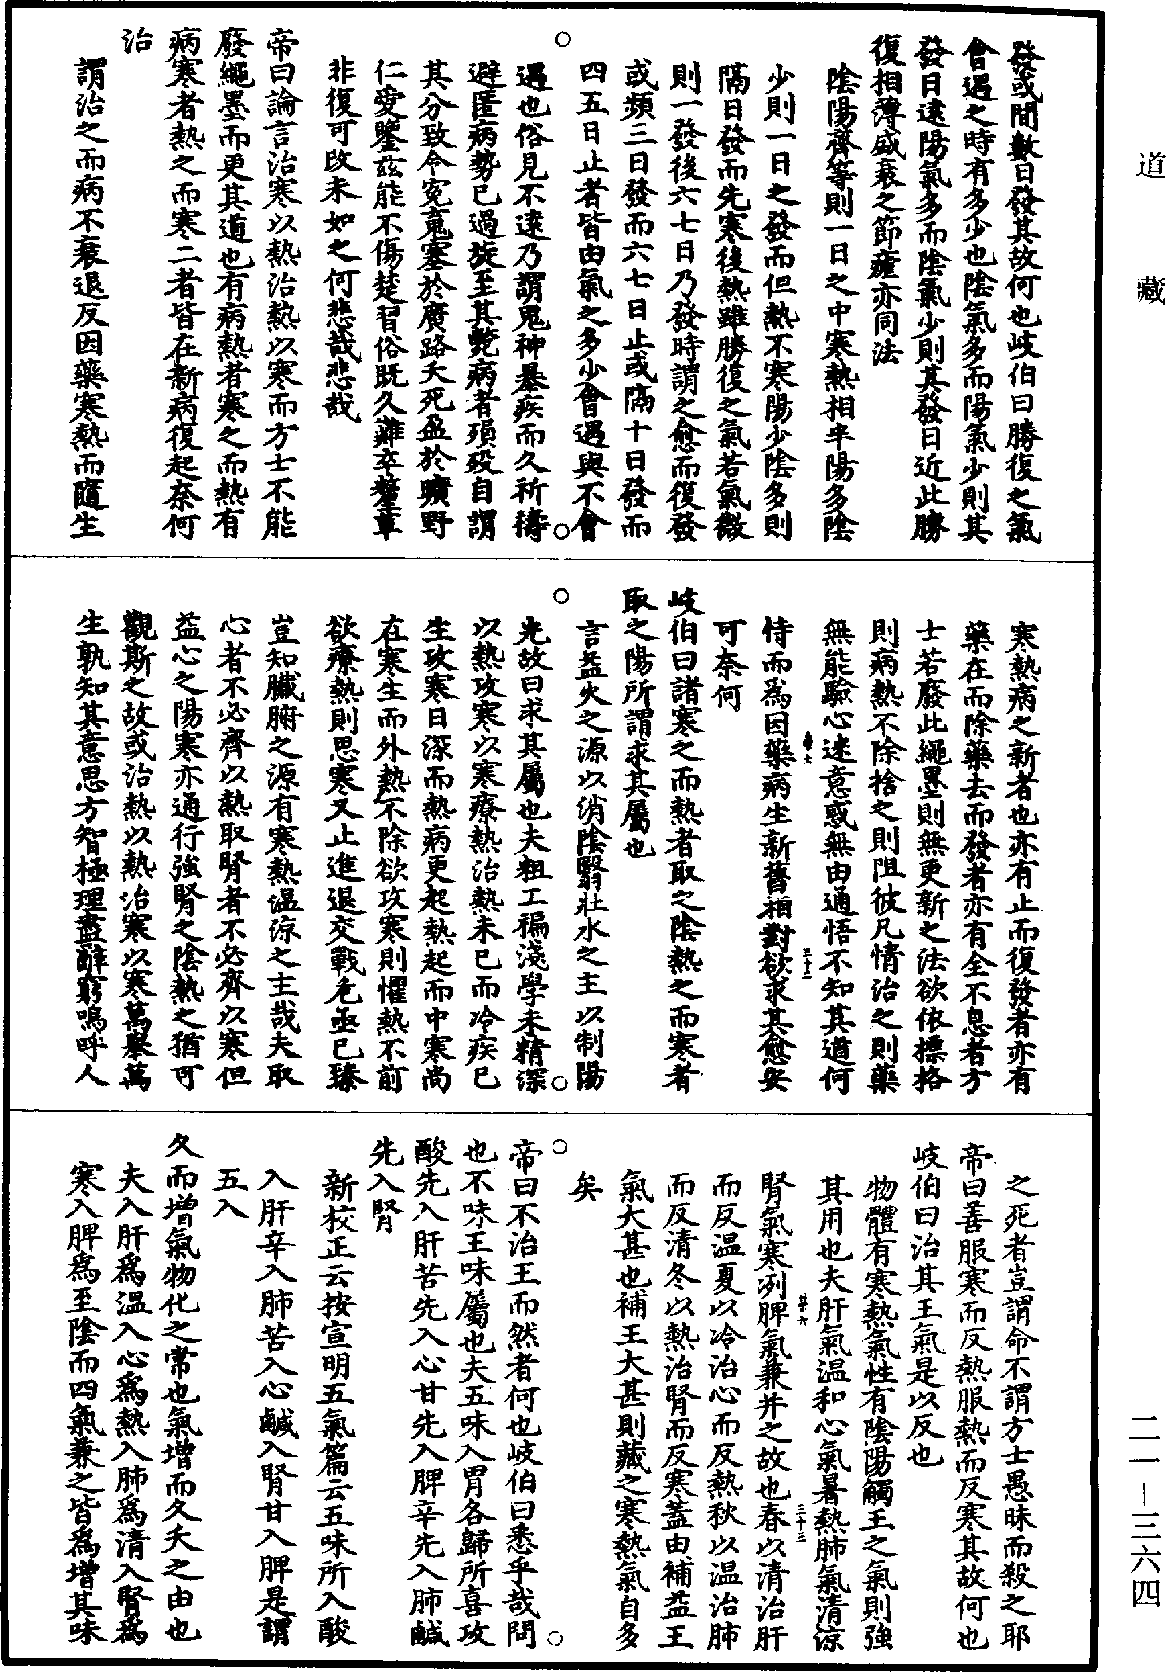 道藏
發或間數日發其故何也岐伯曰勝復之氣
會遇之時有多少也陰氣多而陽氣少則其
發日遠陽氣多而陰氣少則其發日近此勝
復相薄盛衰之節瘧亦同法
陰陽齊等則一日之中寒熱相半陽多陰
少則一日之發而但熱不寒陽少陰多則
隔日發而先寒後熱雖勝復之氣若氣微
則一發後六七日乃發時謂之愈而復發
或頻三日發而六七日止或隔十日發而
四五日止者皆由氣之多少會遇與不會
遇也俗見不遠乃謂鬼神暴疾而久祈禱
避匿病勢已過旋至其斃病者殞歿自謂
其分致令冤䰟塞於廣路夭死盈於曠野
仁愛鑒兹能不傷楚習俗既久難卒釐革
非復可改未如之何悲哉悲哉
帝曰論言治寒以熱治熱以寒而方士不能
廢繩墨而更其道也有病熱者寒之而熱有
病寒者熱之而寒二者皆在新病復起奈何
治
謂治之而病不衰退反因藥寒熱而隨生
寒熱病之新者也亦有止而復發者亦有
藥在而除藥去而發者亦有全不息者方
士若廢此繩墨則無更新之法欲依標格
則病熱不除捨之則阻彼凡情治之則藥
無能驗心迷意惑無由通悟不知其道何
恃而爲因藥病生新舊相對欲求其愈安
可奈何
岐伯曰諸寒之而熱者取之陰熱之而寒者
取之陽所謂求其屬也
言益火之源以消陰翳壯水之主以制陽
光故曰求其屬也夫粗工褊淺學未精深
以熱攻寒以寒療熱治熱未已而冷疾已
生攻寒日深而熱病更起熱起而中寒尚
在寒生而外熱不除欲攻寒則懼熱不前
欲療熱則思寒又止進退交戰危亟已臻
豈知臟腑之源有寒熱溫涼之主哉夫取
心者不必齊以熱取腎者不必齊以寒但
益心之陽寒亦通行強腎之陰熱之猶可
觀斯之故或治熱以熱治寒以寒萬舉萬
生孰知其意思方智極理盡辭窮嗚呼人
之死者豈謂命不謂方士愚昧而殺之耶
帝曰善服寒而反熱服熱而反寒其故何也
岐伯曰治其王氣是以反也
物體有寒熱氣性有陰陽觸王之氣則強
其用也夫肝氣溫和心氣暑熱肺氣清涼
腎氣寒冽脾氣兼并之故也春以清治肝
而反溫夏以冷治心而反熱秋以溫治肺
而反清冬以熱治腎而反寒蓋由補益王
氣大甚也補王大甚則藏之寒熱氣自多
矣
帝曰不治王而然者何也岐伯曰悉乎哉問
也不味王味屬也夫五味入胃各歸所喜攻
酸先入肝苦先入心甘先入脾辛先入肺鹹
先入腎
新校正云按宣明五氣篇云五味所入酸
入肝辛入肺苦入心鹹入腎甘入脾是謂
五入
久而增氣物化之常也氣增而久夭之由也
夫入肝爲溫入心爲熱入肺爲清入腎爲
寒入脾爲至陰而四氣兼之皆爲增其味
二一－三六四